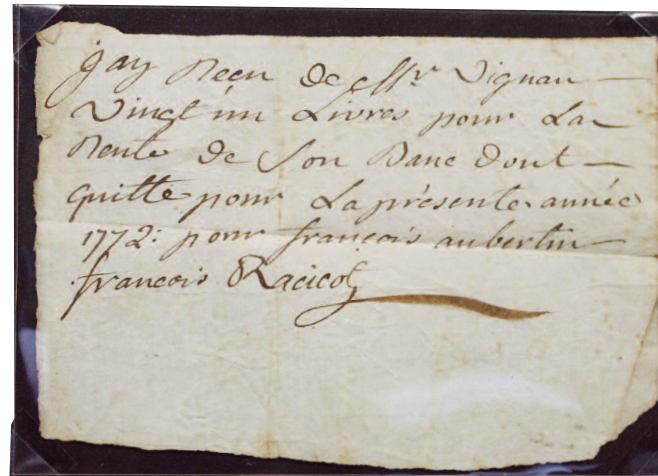 jay Reçu de Mr. Vignau
Vingt un Livres pour La
Rente de Son Banc dont
quitte pour La présente année
1772: pour françois aubertin
francois Racicot